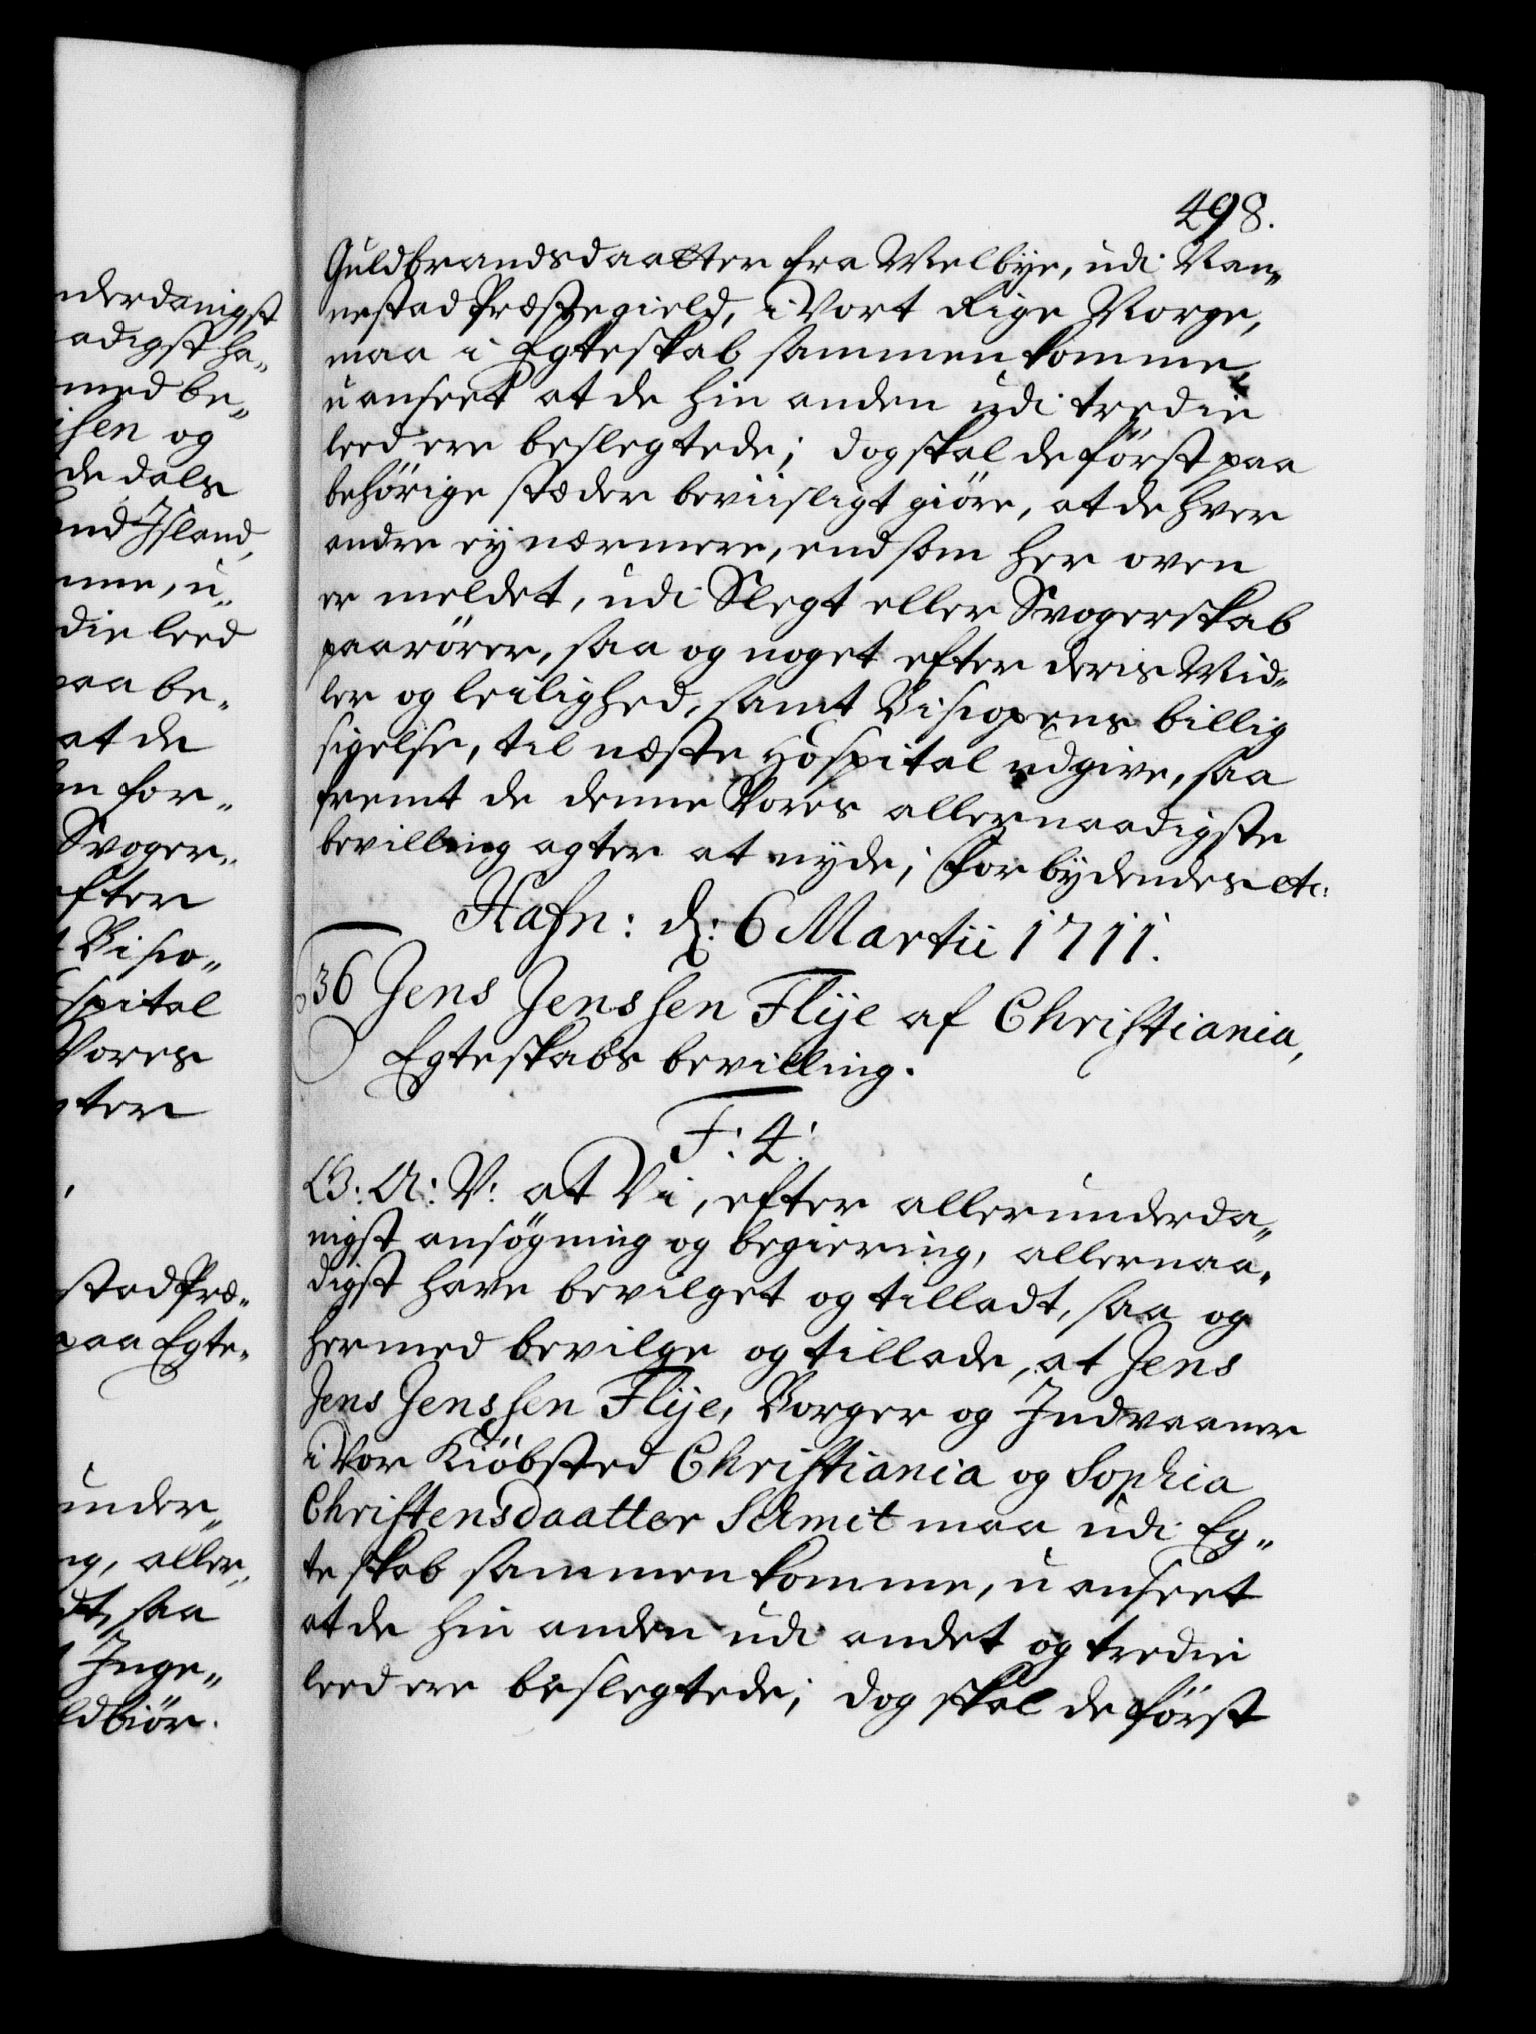 nderdanigst
adigst ha„
med be„
isen og
de dals
and Jsland,
mme, u„
die leed
paa be„
at de
en for„
Svoger„
efter
t Bisco„
spital
Vores
gter
stad Præ„
paa Egte„
under„
ng, aller„
dt, saa
t Inge„
ldbiör.
498.
Guldbrandsdaatter fra Melbÿe, udi Nan„
nestad Præstegield, i Vort Rige Norge,
maa i Egteskab sammenkomme,
uanseet at de hin anden udi tredie
leed ere beslegtede; dog skal de först paa
behörige stæder beviisligt giöre, at de hver
andre eÿ nærmere, end som her oven
er meldet, udi Slegt eller Svogerskab
paarörer, saa og noget efter deris Mid„
ler og leilighed, samt Biscopens billig
sigelse, til næste Hospital udgive, saa
fremt de denne Vores allernaadigste
bevilling agter at nyde; Forbÿdendes etc:
Hafn: d: 6 Martii 1711.
36 Jens Jenssen Flÿe af Christiania,
Egteskabs bevilling.
F: 4:
G: A: V: at Vi, efter allerunderda„
nigst ansögning og begiering, allernaa„
digst have bevilget og tilladt, saa og
hermed bevilge og tillade, at Jens
Jens Jenssen Flÿe, Borger og Indvaaner
i Vor Kiöbsted Christiania og Sophia
Christensdaatter Schmit maa udi Eg„
teskab sammenkomme, uanseet
at de hin anden udi andet og tredie
leed ere beslegtede; dog skal de först